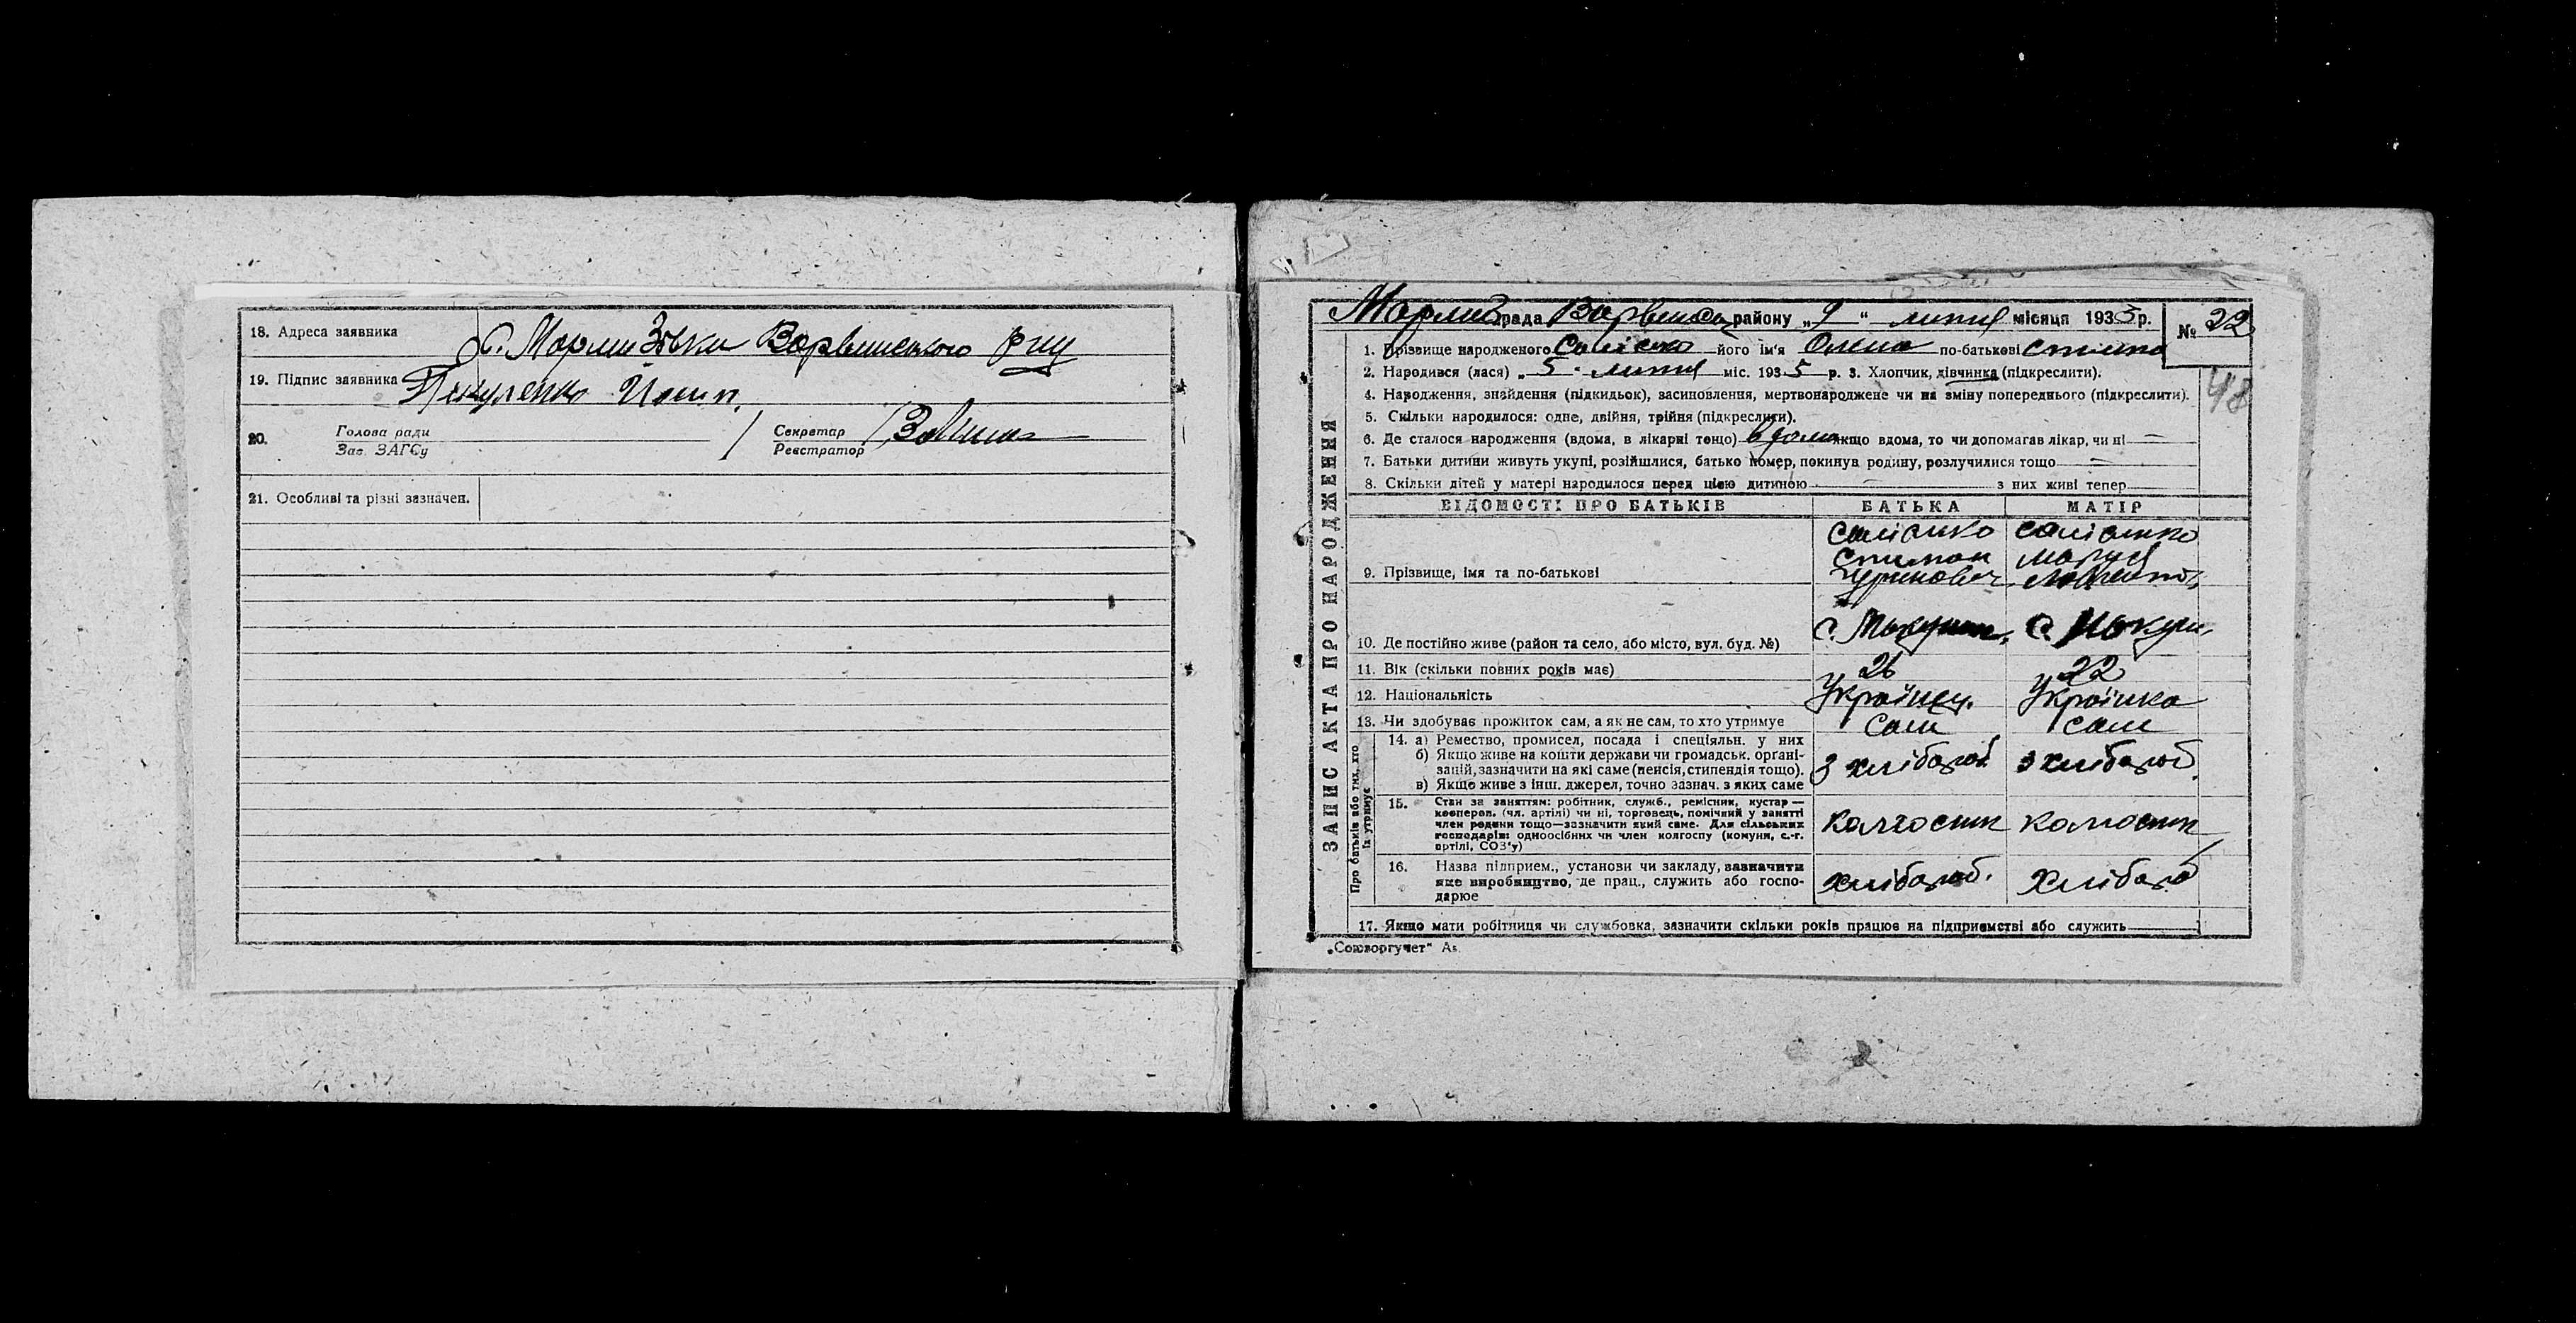 18. Адреса заявника с. Мармизівка Варвинського р-ну
19. Підпис заявника Йосип
20. Голова ради Секретар
Зав. ЗАГСу Реєстратор
21. Особливі та різні зазначен.
ЗАПИС АКТА ПРО НАРОДЖЕННЯ
Мармиз рада Варвинськ району „9“ липня місяця 1935 р. № 22
1. Прізвище народженого його ім'я Олена по-батькові
2. Народився (лася) „5. липня міс. 1935 р. 3. Хлопчик, дівчинка (підкреслити).
48
4. Народження, знайдення (підкидьок), засиновлення, мертвонароджене чи на зміну попереднього (підкреслити).
5. Скільки народилося: одне, двійня, трійня (підкреслити).
6. Де сталося народження (вдома, в лікарні тощо) вдома якщо вдома, то чи допомагав лікар, чи ні —
7. Батьки дитини живуть укупі, розійшлися, батько помер, покинув родину, розлучилися тощо —
8. Скільки дітей у матері народилося перед цією дитиною — з них живі тепер
ВІДОМОСТІ ПРО БАТЬКІВ БАТЬКА МАТІР
9. Прізвище, імя та по-батькові
10. Де постійно живе (район та село, або місто, вул. буд. №) с. с.
11. Вік (скільки повних років має) 26 22
12. Національність Українец. Українка
13. Чи здобуває прожиток сам, а як не сам, то хто утримує сам сам
Про батьків або тих, хто їх утримує
14. а) Ремество, промисел, посада і спеціяльн. у них
б) Якщо живе на кошти держави чи громадськ. органі-
зацій, зазначити на які саме (пенсія, стипендія тощо). з хлібороб. з хлібороб.
в) Якщо живе з інш. джерел, точно зазнач. з яких саме
15. Стан за заняттям: робітник, служб., ремісник, кустар —
кооперов. (чл. артілі) чи ні, торговець, помічний у занятті
член родини тощо—зазначити який саме. Для сільських
господарів: одноосібних чи член колгоспу (комуни, с.-г.
артілі, СОЗ'у) колгоспн колгоспн
16. Назва підприєм., установи чи закладу, зазначити
яке виробництво, де прац., служить або госпо-
дарює хлібороб. хлібороб
17. Якщо мати робітниця чи службовка, зазначити скільки років працює на підприємстві або служить
„Союзоргучет“